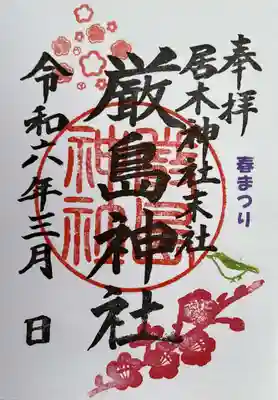 奉拝
居木神社末社
春まつり
厳島神社
令和六年三月 日